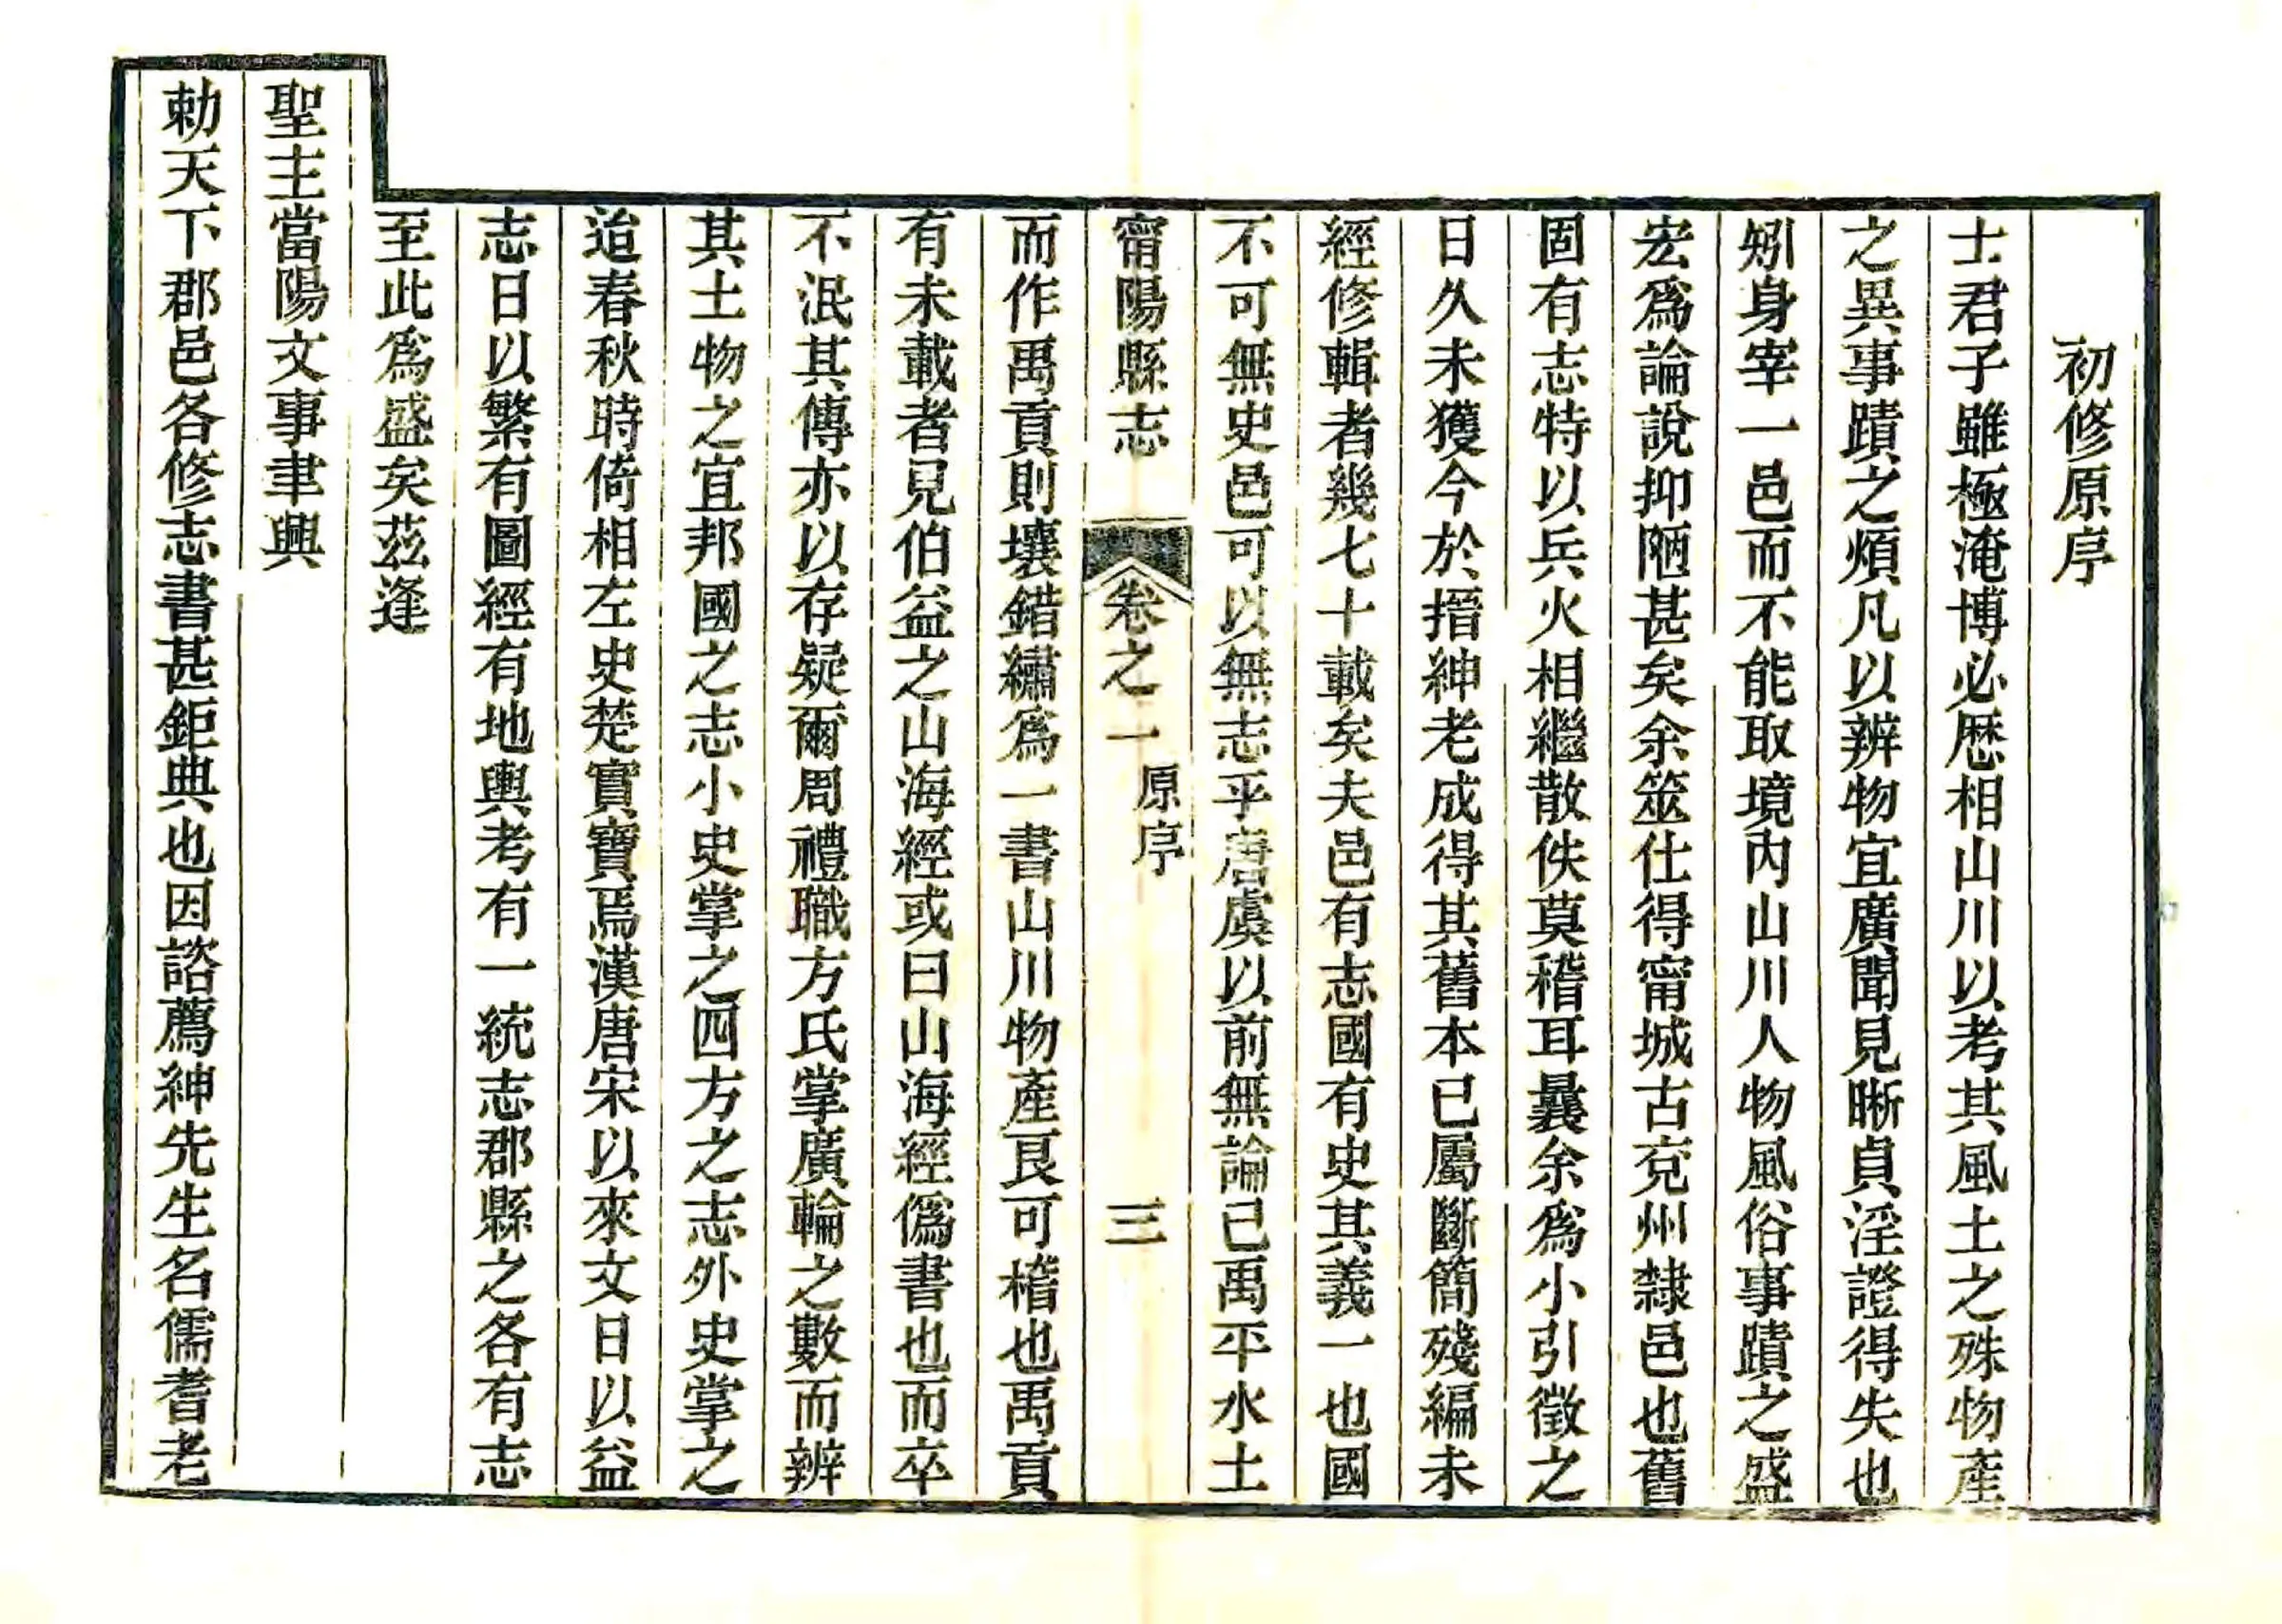 初修原序
士君子雖極淹博必歷相山川以考其風土之殊物產
之異事蹟之煩凡以辨物宜廣聞見晰貞淫證得失也
矧身宰一邑而不能取境內山川人物風俗事蹟之盛
宏爲論說抑陋甚矣余筮仕得甯城古兖州隸邑也舊
固有志特以兵火相繼散佚莫稽耳曩余爲小引徵之
日久未獲今於搢紳老成得其舊本已屬斷簡殘編未
經修輯者幾七十載矣夫邑有志國有史其義一也國
不可無史邑可以無志乎唐虞以前無論已禹平水土
甯陽縣志
卷之一
原序
三
而作禹貢則壤錯繡爲一書山川物產艮可稽也禹貢
有未載者見伯益之山海經或曰山海經僞書也而卒
不泯其傳亦以存疑爾周禮職方氏掌廣輪之數而辨
其土物之宜邦國之志小史掌之四方之志外史掌之
迨春秋時倚相左史楚實寶焉漢唐宋以來文日以益
志日以繁有圖經有地輿考有一統志郡縣之各有志
至此爲盛矣茲逢
聖主當陽文事聿興
勅天下郡邑各修志書甚鉅典也因諮薦紳先生名儒耆老